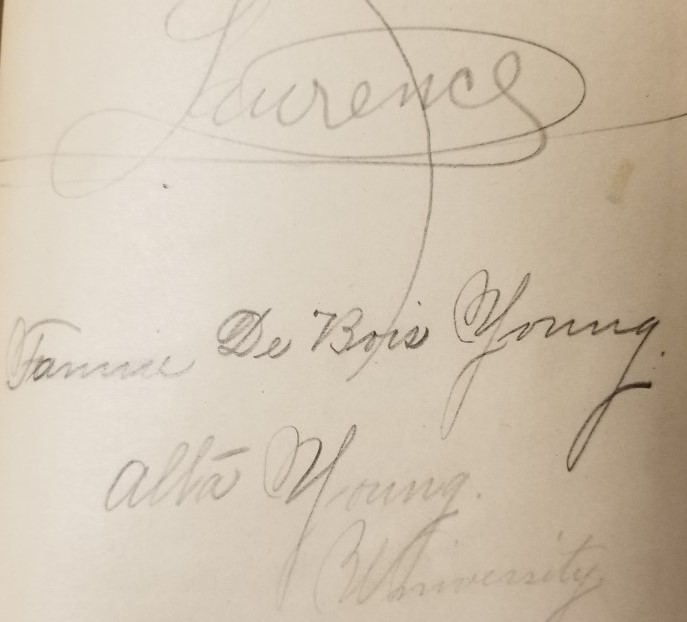 Laurence
Fannie De Bois Young.
Alta Young.
University